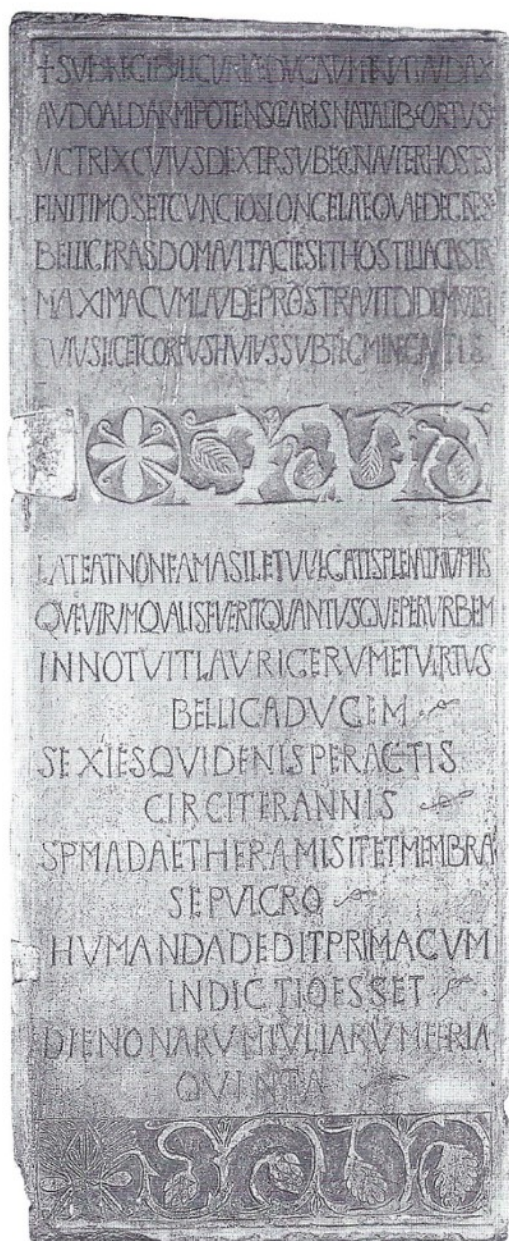 +SVBREGIBLIGVRIAEDVCATVMTENVITAVDAX
AVDOALDARMIPOTENSCLARISNATALIBORTVS
VICTRIXCVIVSDEXTERSVBEGITNAVITERHOSTES
FINITIMOSETCVNCTOSLONGELATEQVAEDEGENTES
BELLIGERASDOMAVITACIESETHOSTILIACASTRA
MAXIMACVMLAVDEPROSTRAVITDIDIMVSISTE
CVIVSHICESTCORPVSHVIVSSVBTEGMINECAVTIS
LATEATNONFAMASILETVVLGATISPLENATRIVMPHIS
QVEVIRVMQVALISFVERITQVANTVSQVEPERVRBEM
INNOTVITLAVRIGERVMETVIRTVS
BELLICADVCEM
SEXIESQVIDENISPERACTIS
CIRCITERANNIS
SPMADAETHERAMISITETMEMBRA
SEPVLCRO
HVMANDADEDITPRIMACVM
INDICTIOESSET
DIENONARVMIVLIARVMFERIA
QVINTA